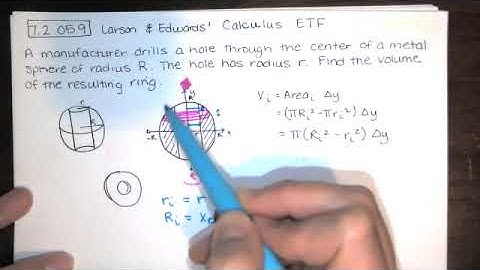 7.2 059 Larson & Edwards' Calculus ETF
A manufacturer drills a hole through the center of a metal
sphere of radius R. The hole has radius r. Find the volume
of the resulting ring.
Vᵢ = Areaᵢ Δy
= (πRᵢ² - πrᵢ²) Δy
= π(Rᵢ² - rᵢ²) Δy
rᵢ = r
Rᵢ = x